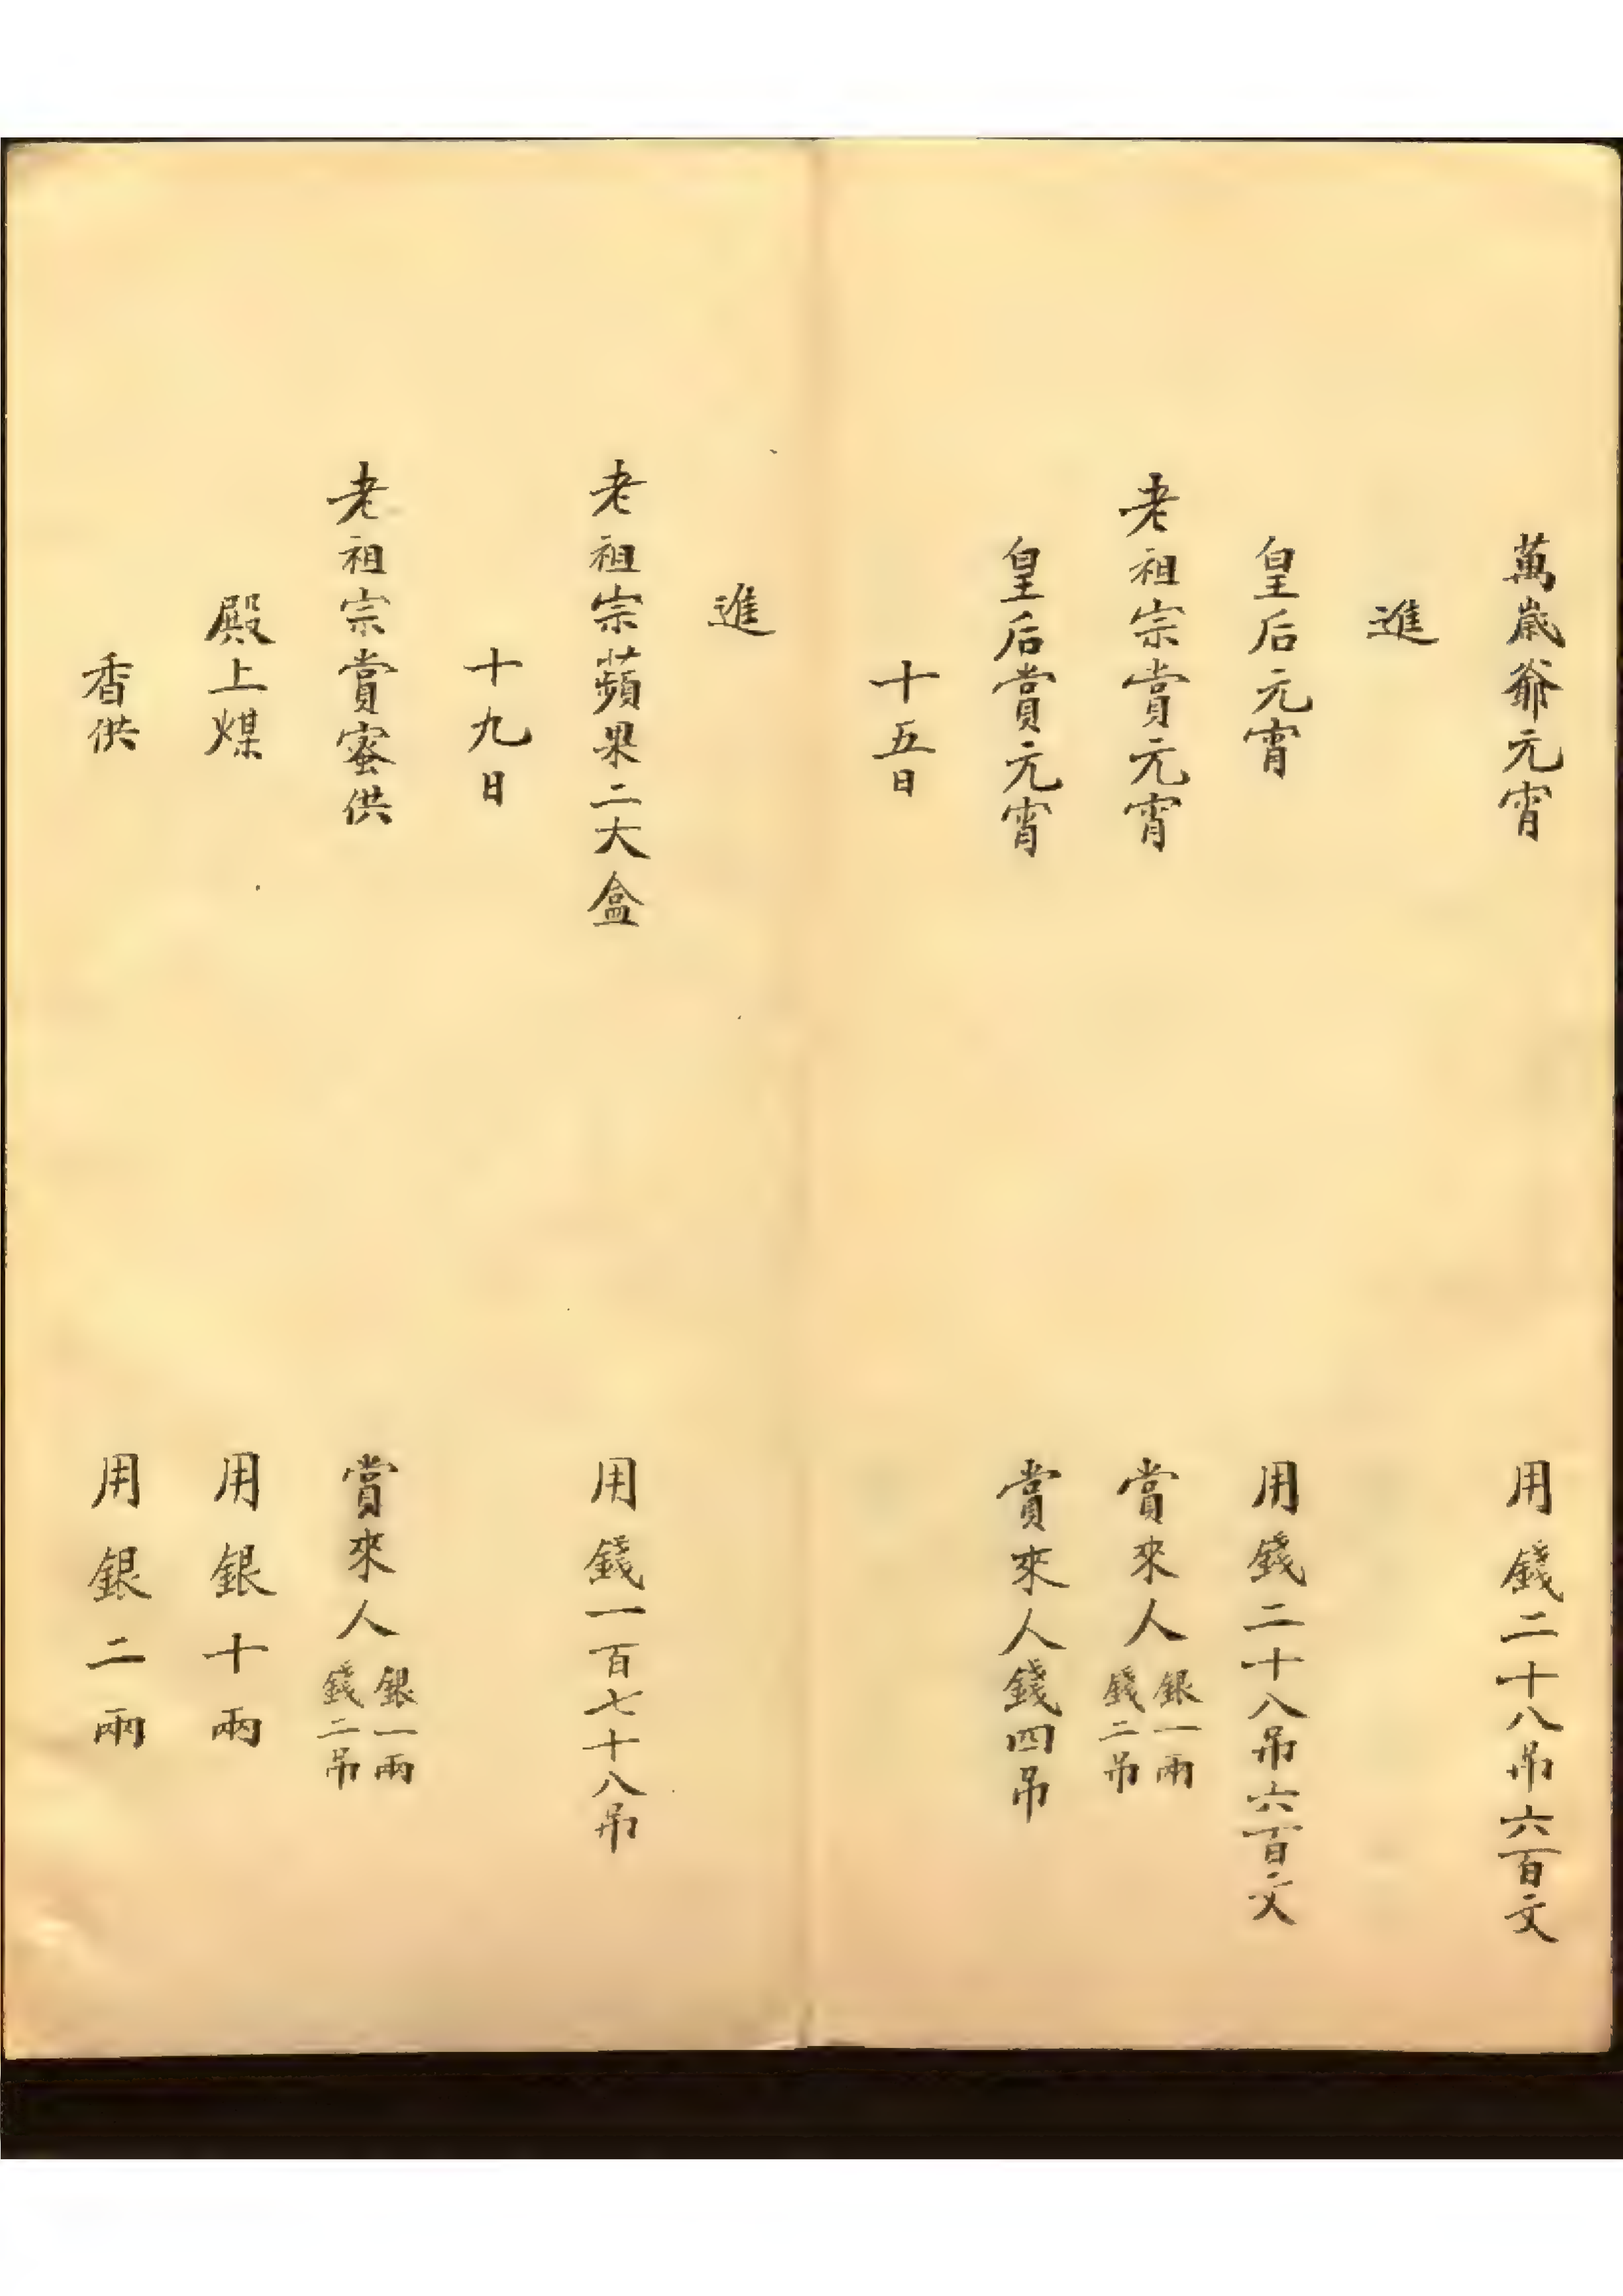 萬歲爺元宵　用錢二十八吊六百文
進
皇后元宵　用錢二十八吊六百文
老祖宗賞元宵　賞來人銀一兩錢二吊
皇后賞元宵　賞來人錢四吊
十五日
進
老祖宗蘋果二大盒　用錢一百七十八吊
十九日
老祖宗賞蜜供　賞來人銀一兩錢二吊
殿上煤　用銀十兩
香供　用銀二兩